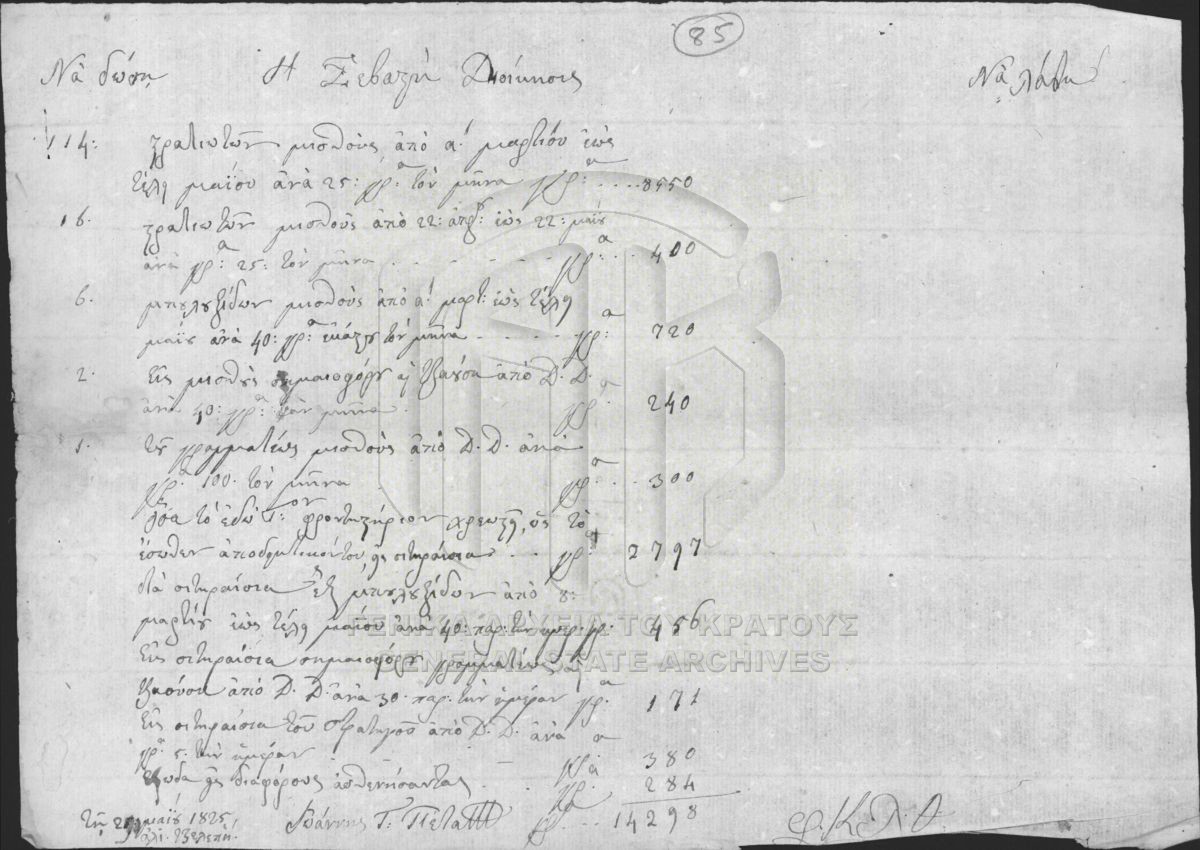 85
Νὰ δώση Ἡ Σεβαστὴ Διοίκησις Νὰ λάβη
114: στρατιωτῶν μισθοὺς ἀπὸ α΄ μαρτίου ἕως
τέλη μαΐου ἀνὰ 25: γρ:α τὸν μῆνα γρ:α .... 8550
16. στρατιωτῶν μισθοὺς ἀπὸ 22: ἀπρ: ἕως 22: μαΐου
ἀνὰ γρ:α 25: τὸν μῆνα γρ:α .. 400
6. μπουλουξίδων μισθοὺς ἀπὸ α΄ μαρτ: ἕως τέλη
μαΐου ἀνὰ 40: γρ:α ἑκάστου τὸν μῆνα γρ:α 720
2. Εἰς μισθοὺς σημαιοφόρου ἀπὸ Δ. Δ.
ἀνὰ 40: γρ:α τὸν μῆνα γρ:α 240
1. τοῦ γραμματέως μισθοὺς ἀπὸ Δ. Δ. ἀνὰ
γρ:α 100. τὸν μῆνα γρ:α .. 300
ὅσα τὸ ἐδῶ φροντιστήριον χρεωστεῖ, ὡς τὸ
ἔσωθεν ἀποδεικτικόν του σιτηρέσια .. γρ:α 2797
διὰ σιτηρέσια ἓξ μπουλουξίδων ἀπὸ 8:
μαρτίου ἕως τέλη μαΐου ἀνὰ 40: παρ: τὴν ἡμέρ: γρ. 456
Εἰς σιτηρέσια σημαιοφόρου γραμματέως
ἀπὸ Δ. Δ. ἀνὰ 30. παρ: τὴν ἡμέραν γρ:α 171
Εἰς σιτηρέσια τοῦ στρατηγοῦ ἀπὸ Δ. Δ. ἀνὰ
γρ:α 5. τὴν ἡμέραν γρ:α 380
ἔξοδα εἰς διαφόρους ἀσθενήσαντας γρ:α 284
μαΐου 1825 Ἰωάννης Γ: γρ:α .. 14298
ἀλί: τζελεπή
ΓΕΝΙΚΑ ΑΡΧΕΙΑ ΤΟΥ ΚΡΑΤΟΥΣ
GENERAL STATE ARCHIVES